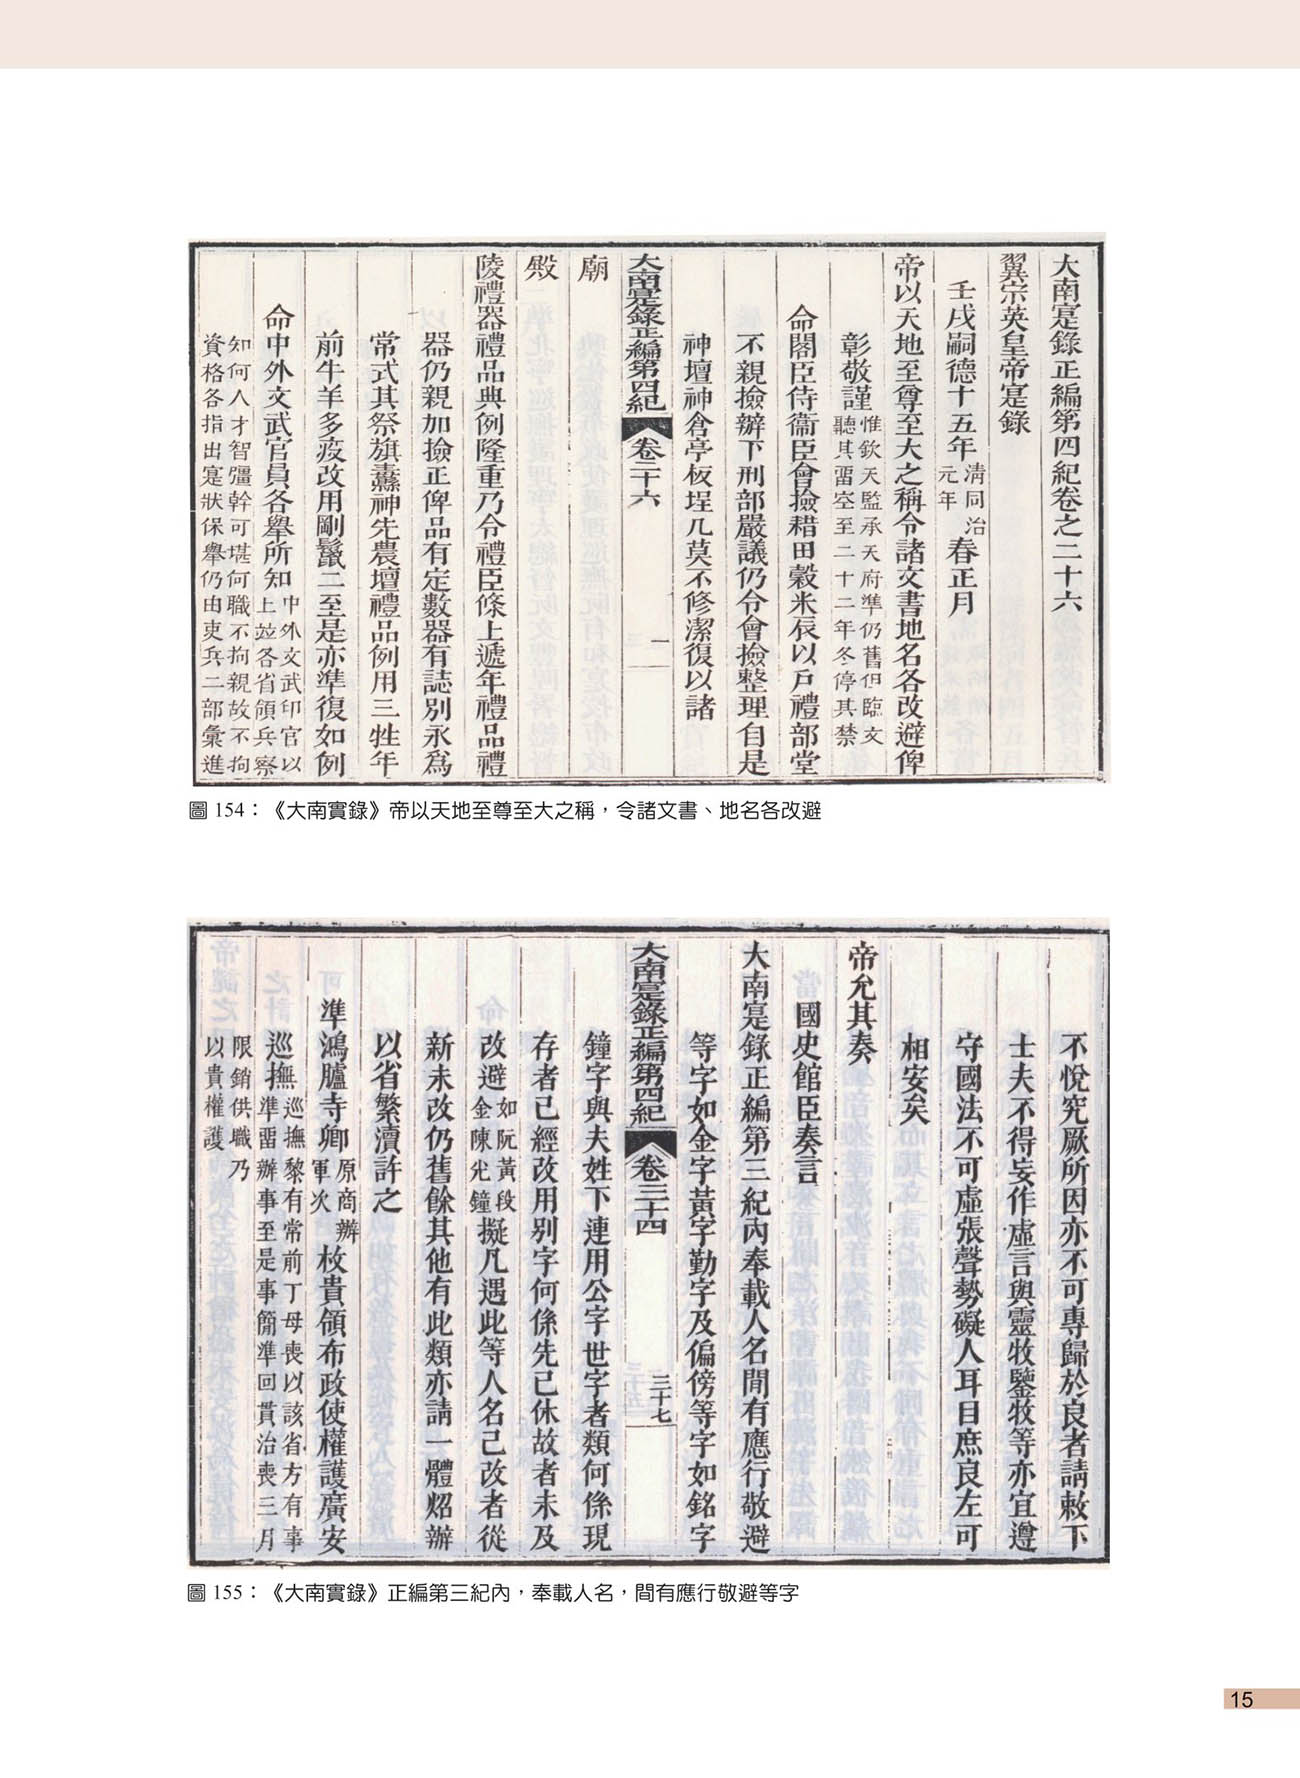 大南寔錄正編第四紀卷之二十六
翼宗英皇帝寔錄
壬戌嗣德十五年清同治元年春正月
帝以天地至尊至大之稱令諸文書地名各改避俾
彰敬謹惟欽天監承天府準仍舊但臨文聽其畱空至二十二年冬停其禁
命閣臣侍衞臣會撿耤田穀米辰以戸禮部堂
不親撿辦下刑部嚴議仍令會撿整理自是
神壇神倉亭板埕几莫不修潔復以諸
大南寔錄正編第四紀 卷二十六 一
廟
殿
陵禮器禮品典例隆重乃令禮臣條上遞年禮品禮
器仍親加撿正俾品有定數器有誌別永爲
常式其祭旗纛神先農壇禮品例用三牲年
前牛羊多疫改用剛鬣二至是亦準復如例
命中外文武官員各舉所知中外文武印官以上並各省領兵察
知何人才智彊幹可堪何職不拘親故不拘
資格各指出寔狀保舉仍由吏兵二部彙進
圖 154：《大南實錄》帝以天地至尊至大之稱，令諸文書、地名各改避
不悅究厥所因亦不可專歸於良者請敕下
士夫不得妄作虛言與靈牧鑒牧等亦宜遵
守國法不可虛張聲勢礙人耳目庶良左可
相安矣
帝允其奏
國史館臣奏言
大南寔錄正編第三紀內奉載人名間有應行敬避
等字如金字黃字勤字及偏傍等字如銘字
大南寔錄正編第四紀 卷三十四 三十七
鐘字與夫姓下連用公字世字者類何係現
存者已經改用別字何係先已休故者未及
改避如阮黃段金陳光鐘擬凡遇此等人名已改者從
新未改仍舊餘其他有此類亦請一體炤辦
以省繁瀆許之
準鴻臚寺卿原商辦軍次枚貴領布政使權護廣安
巡撫巡撫黎有常前丁母喪以該省方有事準畱辦事至是事簡準回貫治喪三月
限銷供職乃
以貴權護
圖 155：《大南實錄》正編第三紀內，奉載人名，間有應行敬避等字
15